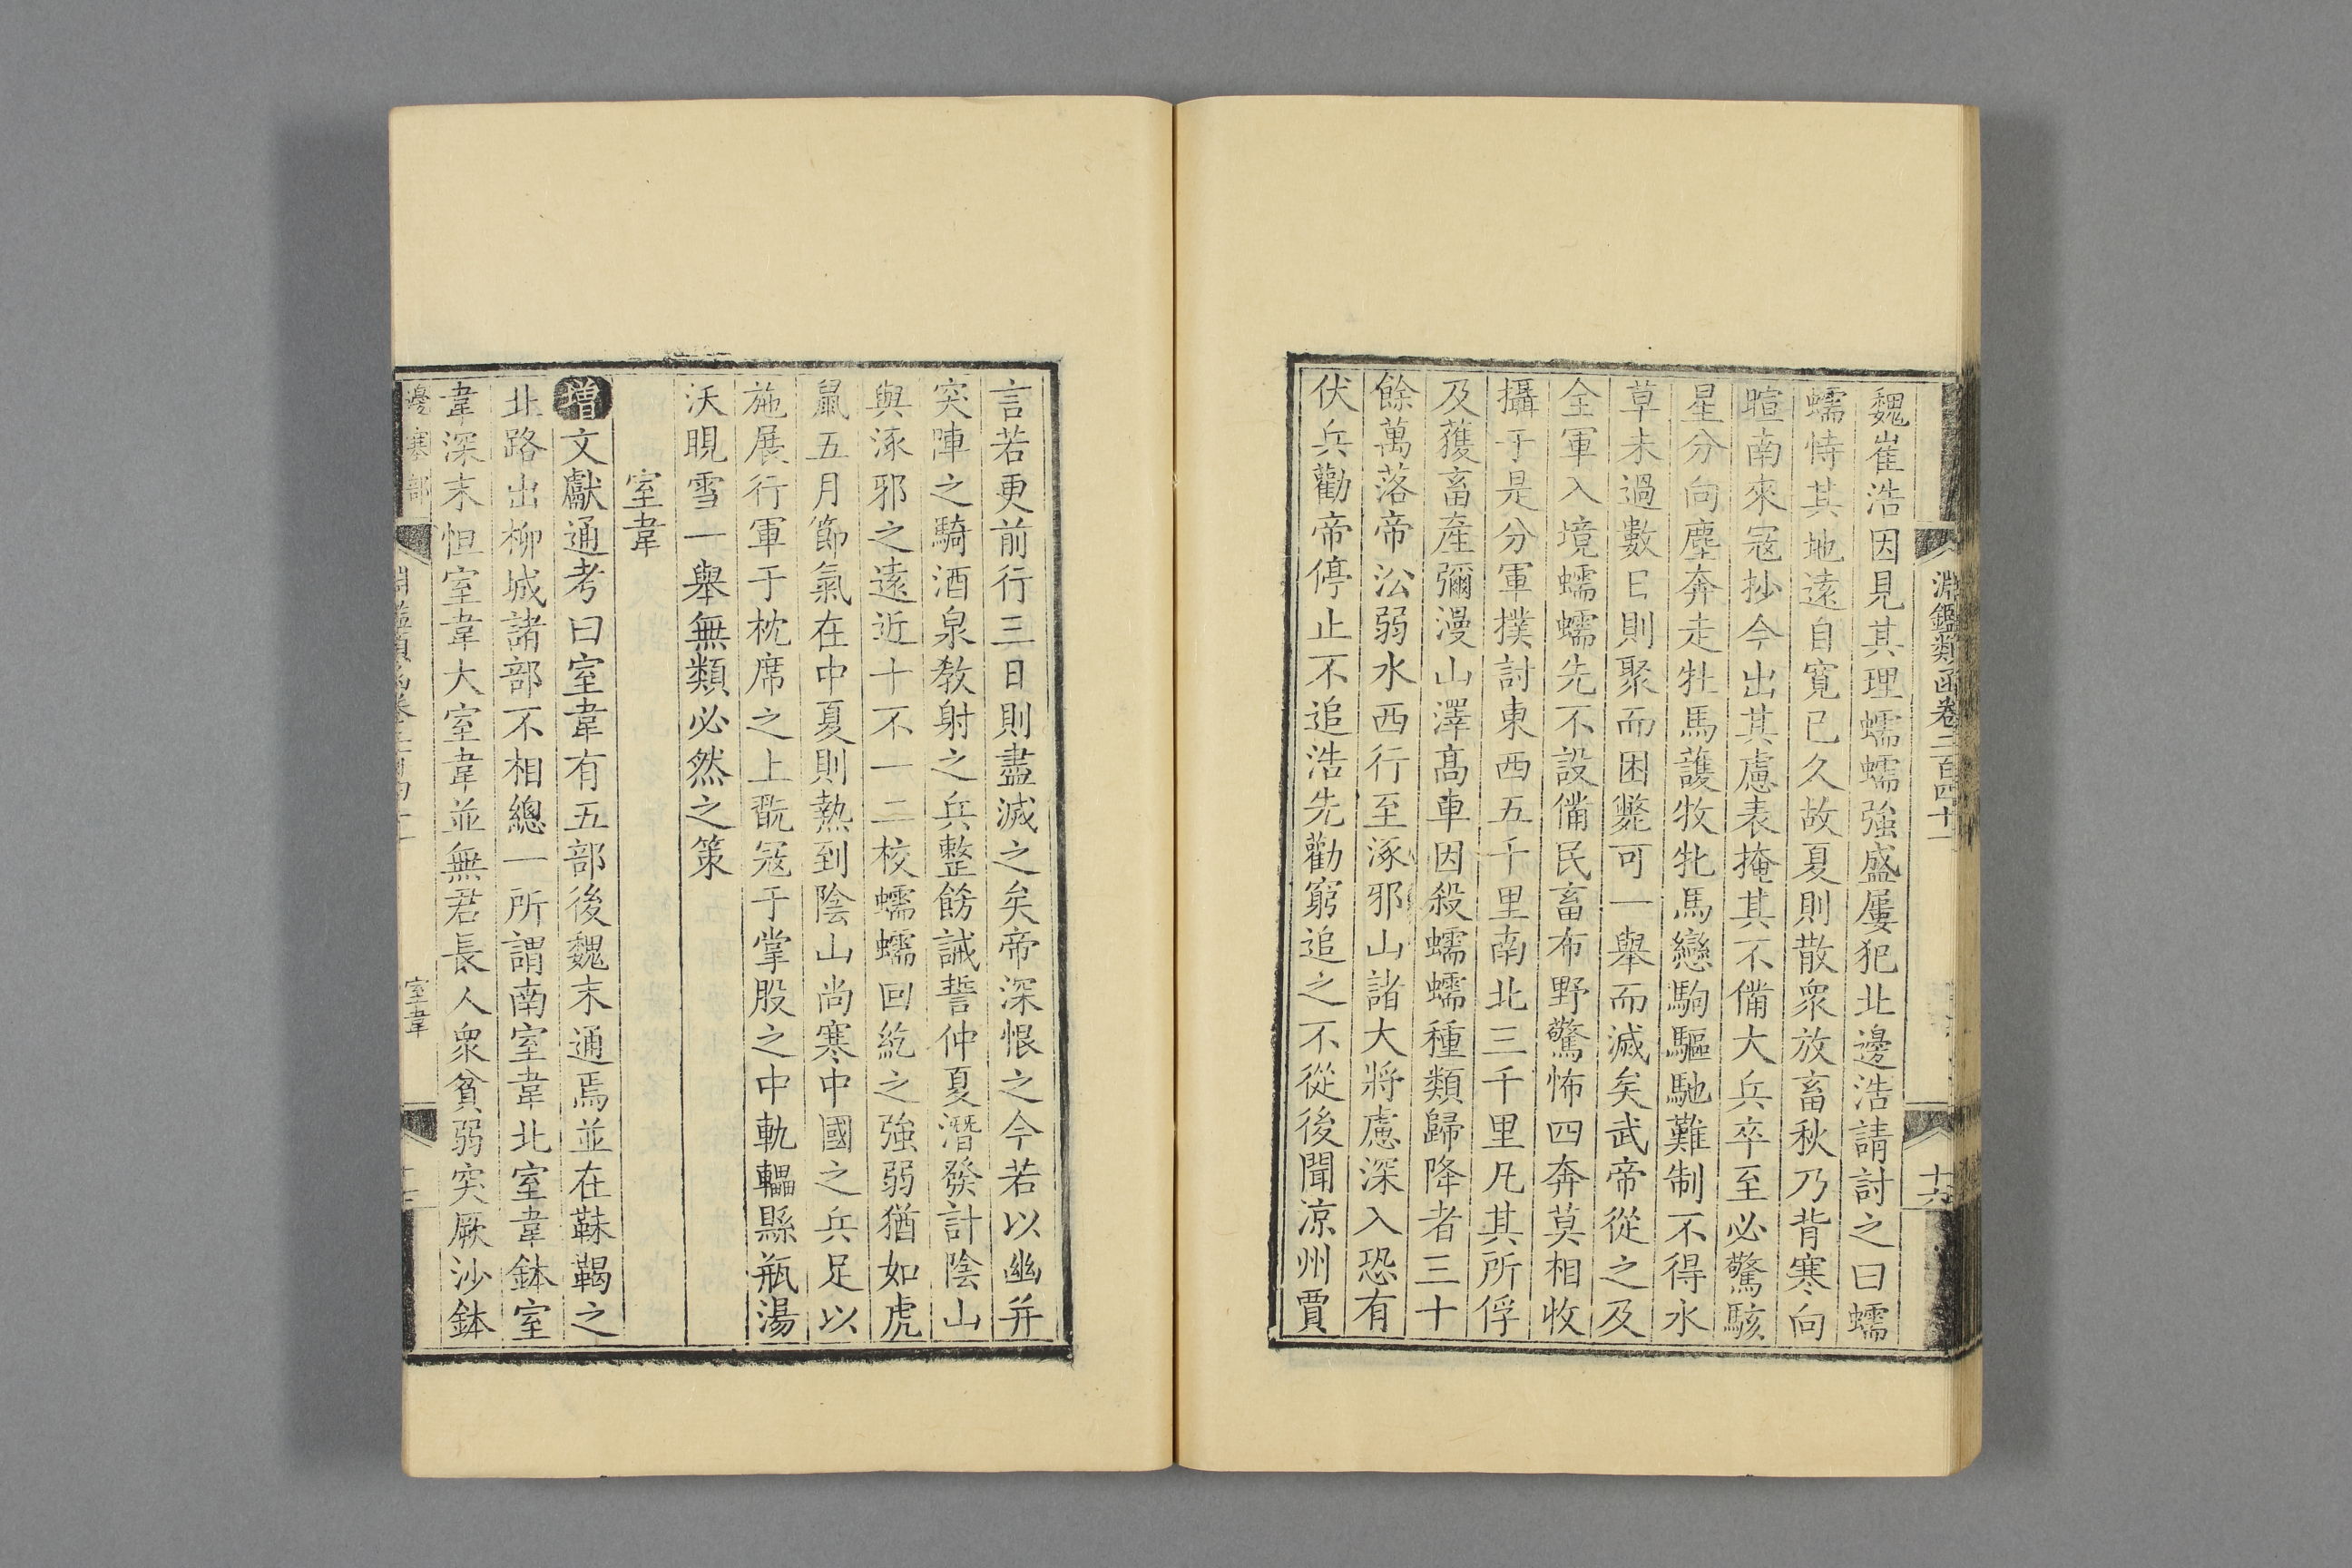 淵鑑類函卷二百四十一
十六
魏崔浩因見其理蠕蠕強盛屢犯北邊浩請討之曰蠕
蠕恃其地遠自寬已久故夏則散衆放畜秋乃背寒向
暄南來冦抄今出其慮表掩其不備大兵卒至必驚駭
星分向塵奔走牡馬護牧牝馬戀駒驅馳難制不得水
草未過數日則聚而困斃可一舉而滅矣武帝從之及
全軍入境蠕蠕先不設備民畜布野驚怖四奔莫相收
攝于是分軍撲討東西五千里南北三千里凡其所俘
及獲畜産彌漫山澤髙車因殺蠕蠕種類歸降者三十
餘萬落帝沿弱水西行至涿邪山諸大將慮深入恐有
伏兵勸帝停止不追浩先勸窮追之不從後聞凉州賈
言若更前行三日則盡滅之矣帝深恨之今若以幽并
突陣之騎酒泉教射之兵整飭誡誓仲夏潛發計陰山
與涿邪之遠近十不一二校蠕蠕回紇之強弱猶如虎
鼠五月節氣在中夏則熱到陰山尚寒中國之兵足以
施展行軍于枕席之上翫冦于掌股之中軌轠縣瓶湯
沃晛雪一舉無類必然之策
室韋
增文獻通考曰室韋有五部後魏末通焉並在靺鞨之
北路出柳城諸部不相總一所謂南室韋北室韋鉢室
韋深末怛室韋大室韋並無君長人衆貧弱突厥沙鉢
邊塞部
室韋